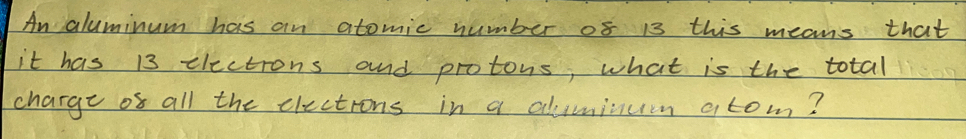 An aluminum has an atomic number of 13 this means that
it has 13 electrons and protons, what is the total
charge of all the electrons in a aluminum atom?